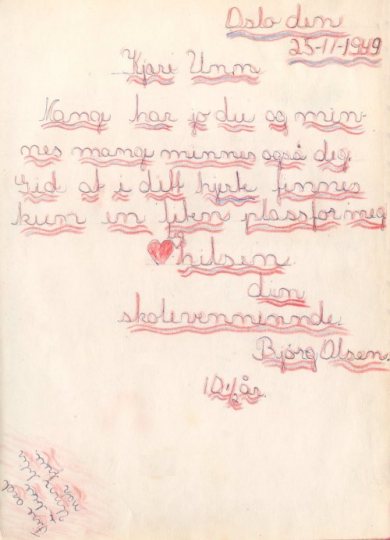 Oslo den
25-11-1949
Kjære Unn
Mange har jo du og min-
nes mange minnes også deg
Gid at i ditt hjerte finnes
kun en liten plass for meg
hilsen
din
skolevenninde.
Bjørg Olsen.
10½ år.